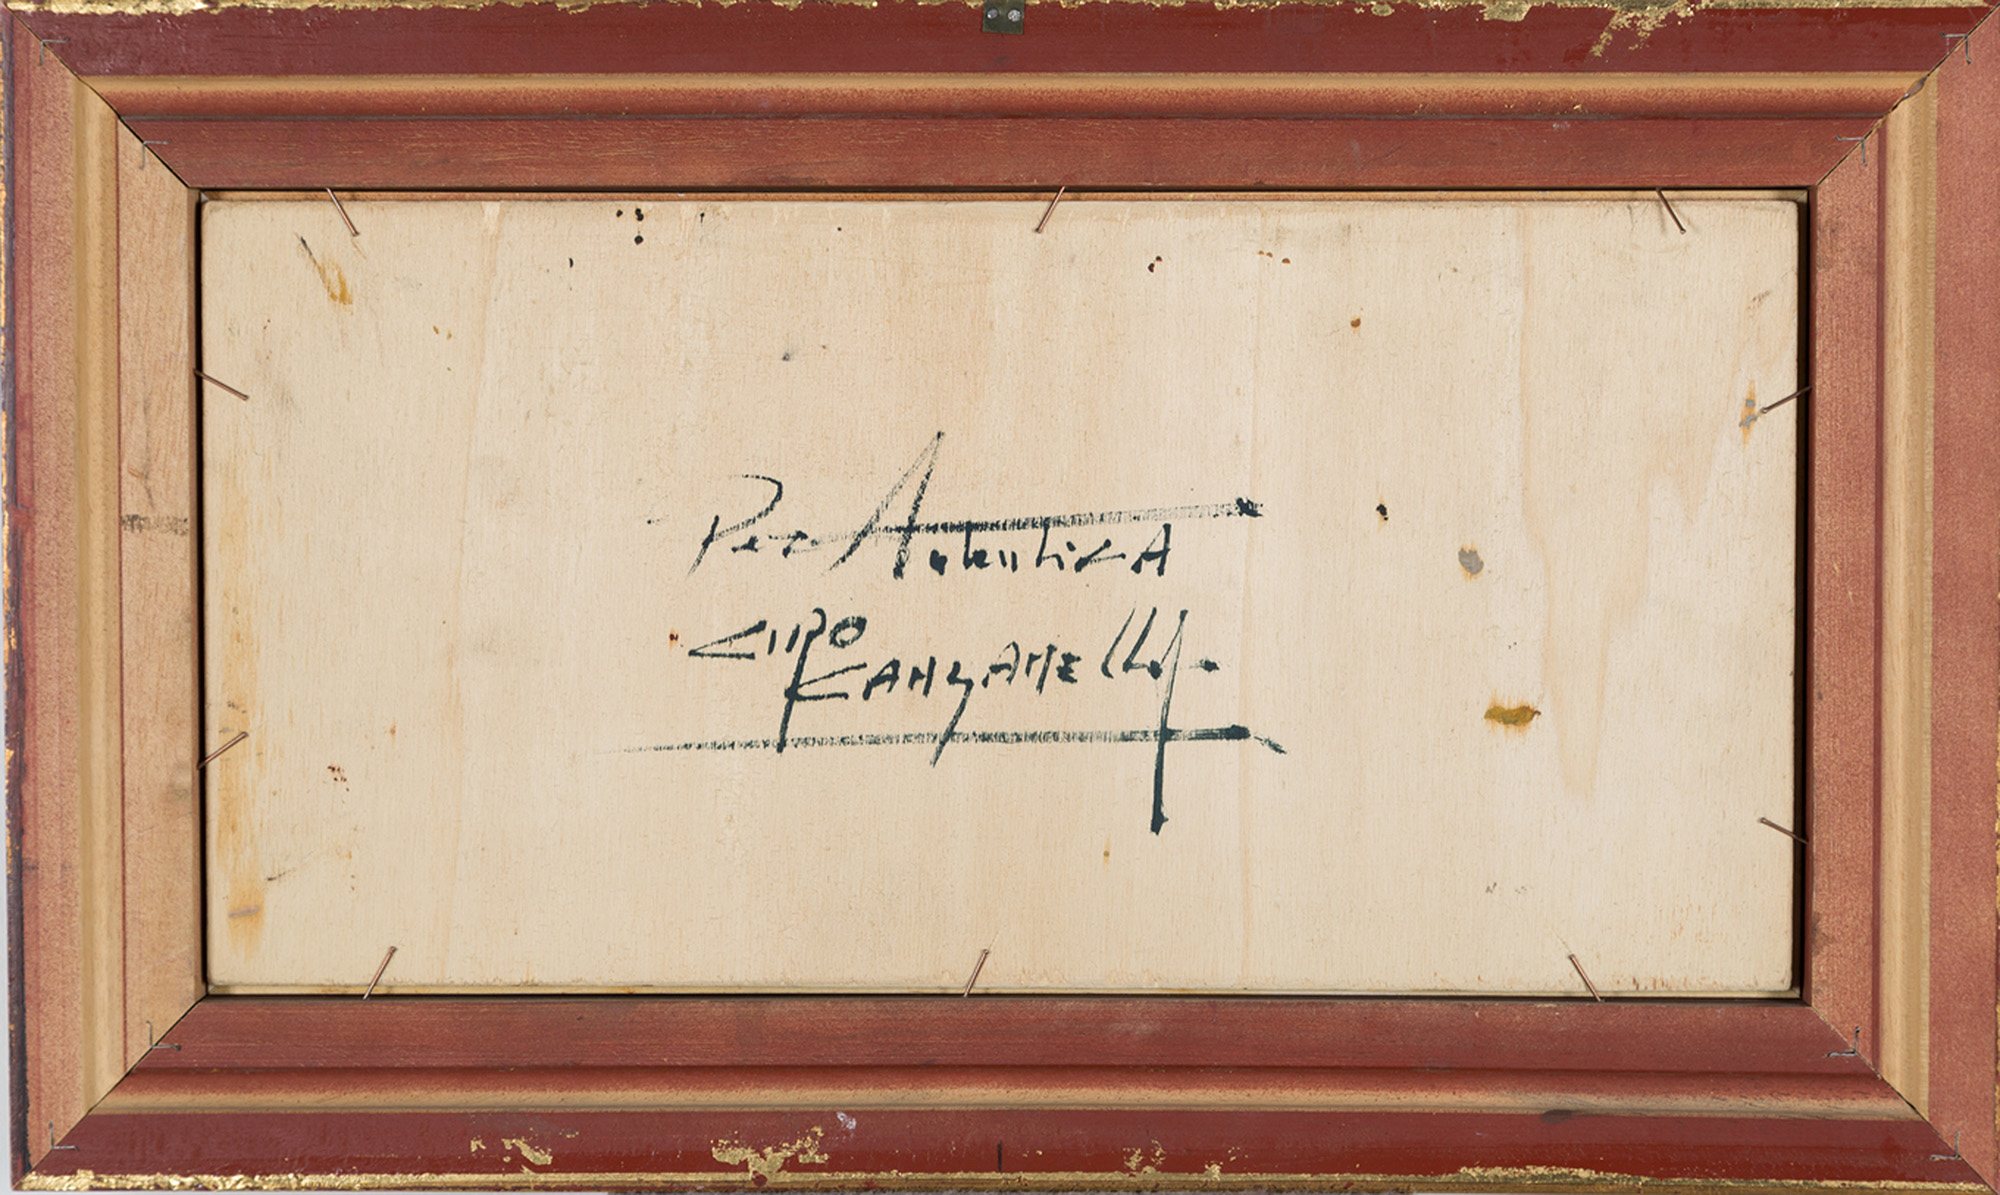 Per Autentica
CIRO
CANZANELLA